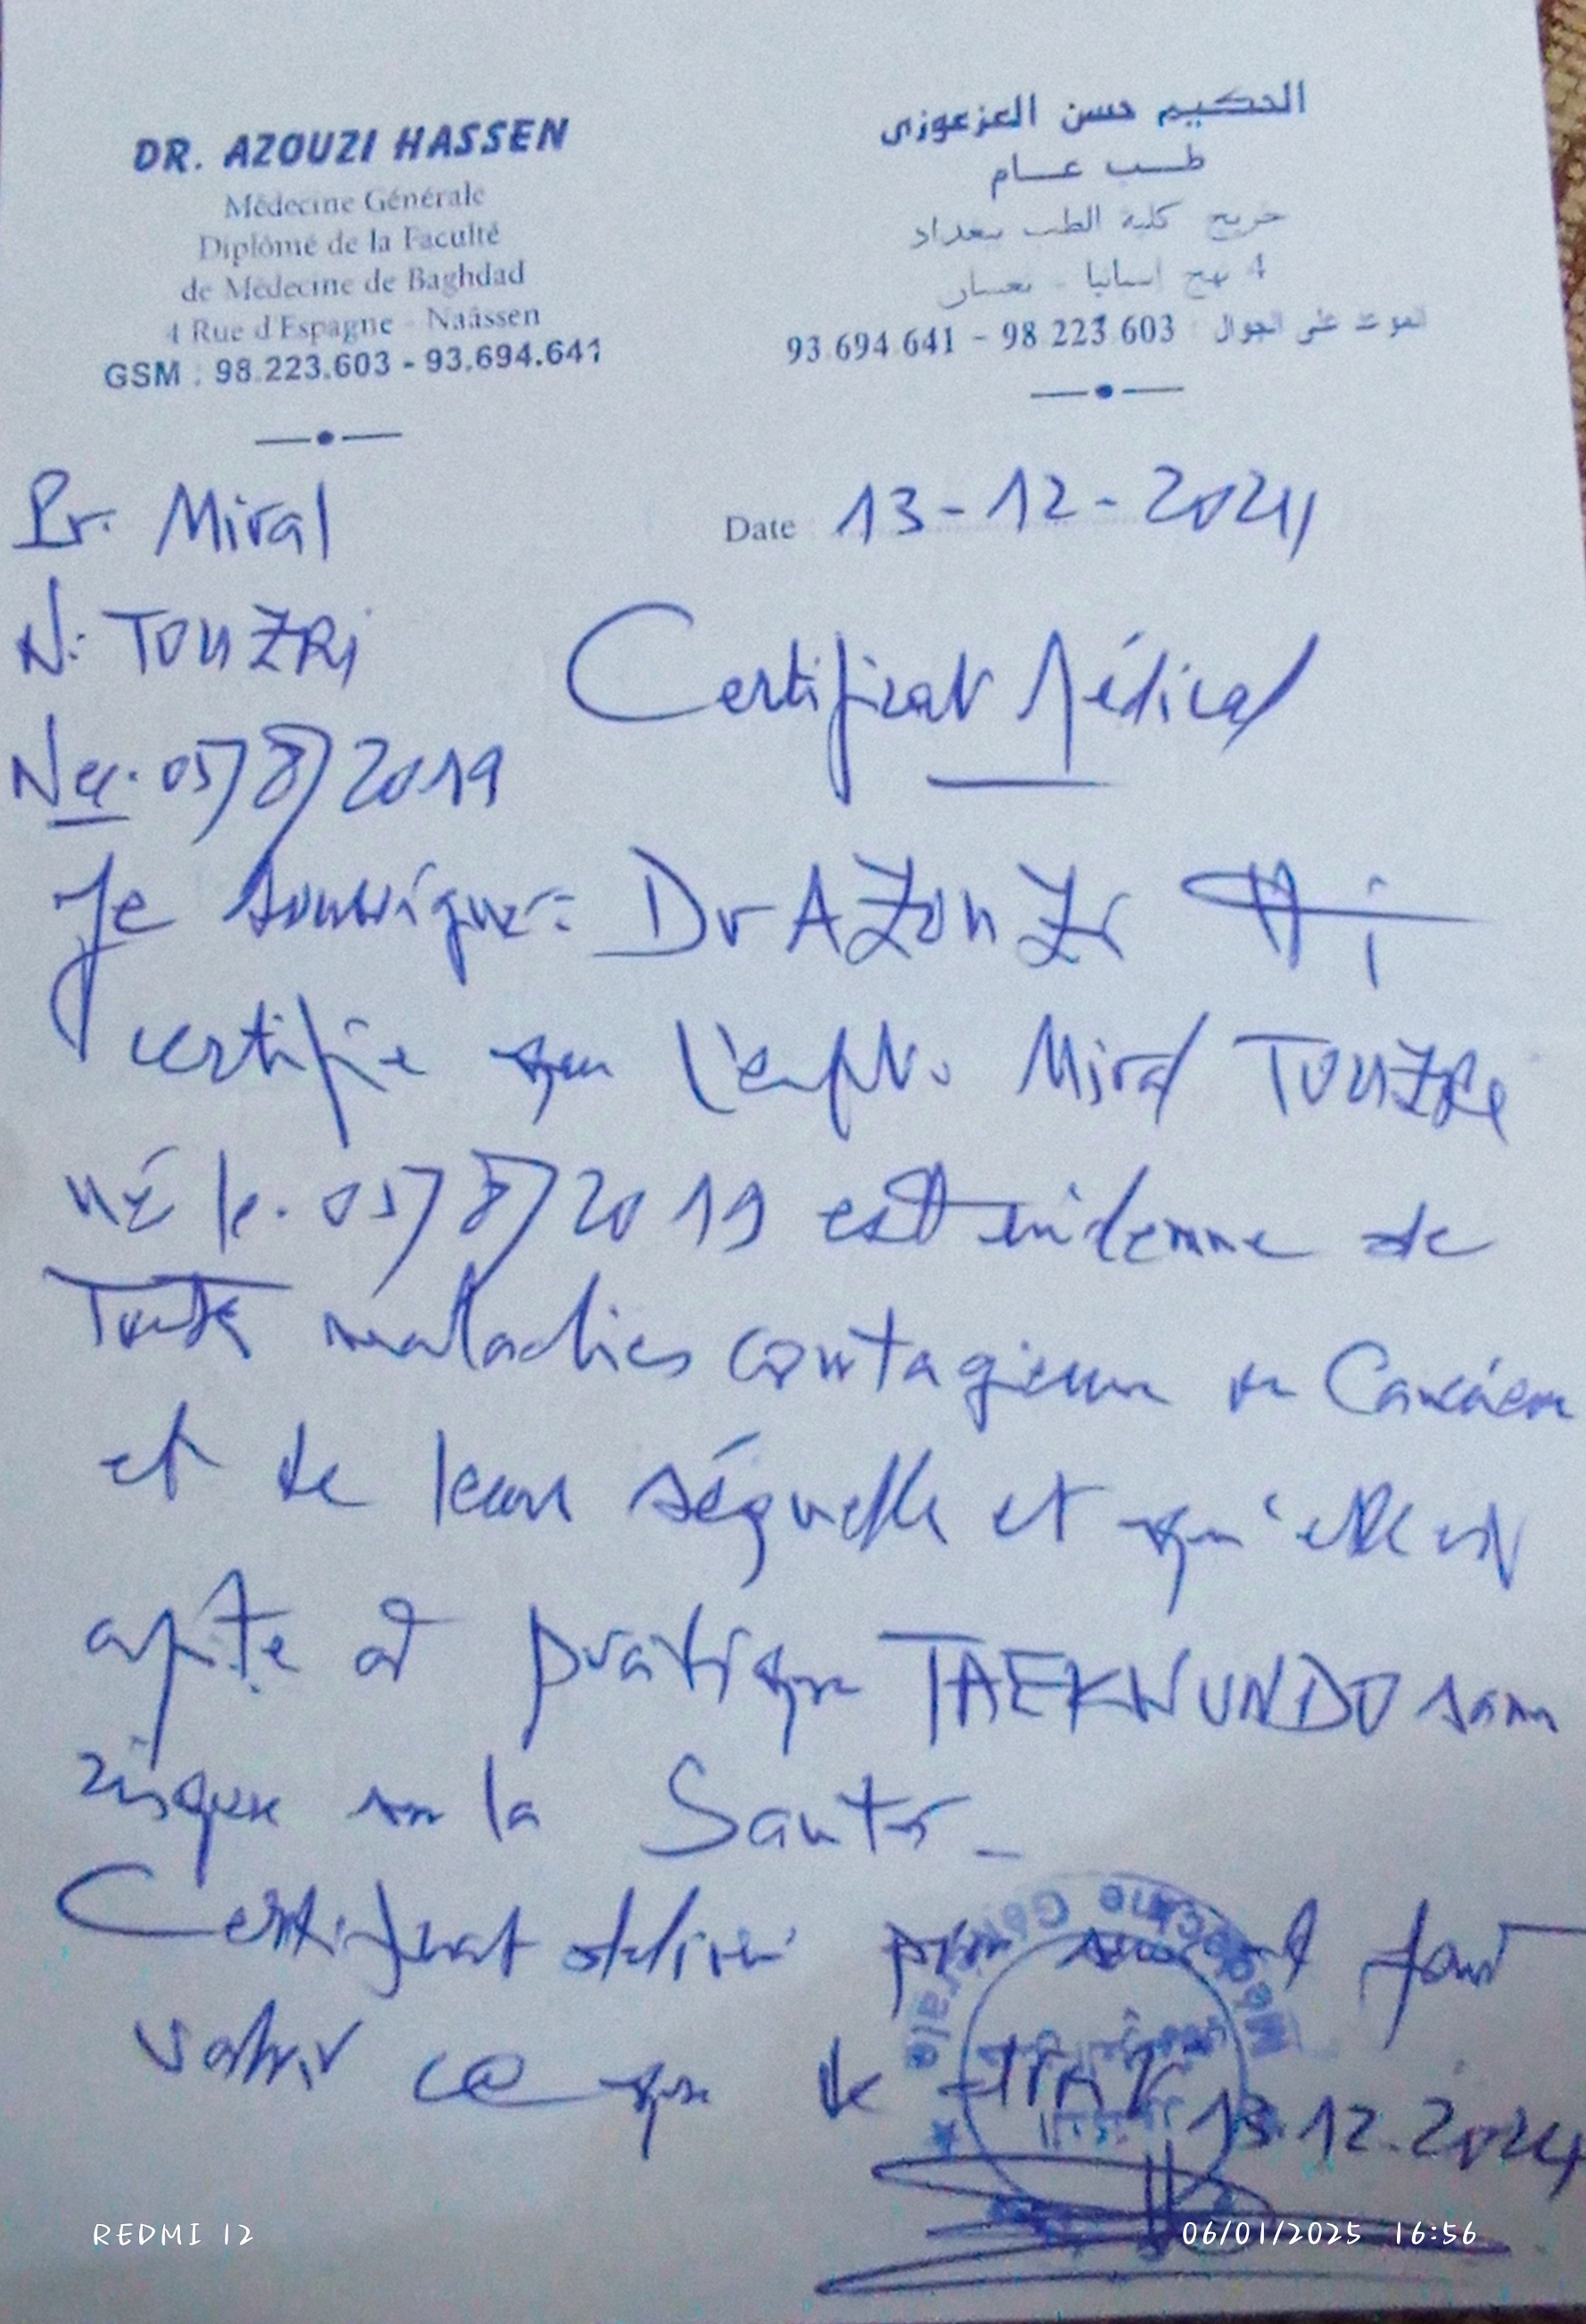 DR. AZOUZI HASSEN
Médecine Générale
Diplômé de la Faculté
de Médecine de Baghdad
4 Rue d'Espagne - Naâssen
GSM : 98.223.603 - 93.694.641
الحكيم حسن العزعوزي
طب عام
خريج كلية الطب ببغداد
4 نهج اسبانيا - نعسان
93 694 641 - 98 223 603 : الصوت على الجوال
Pr. Miral
N: TOUZRi
Date 13-12-2024
Certificat Médical
Née. 05/8/2019
Je soussigné: Dr AZOUZI H
certifie que l'enfant Miral TOUZRi
né le. 05/8/2019 est indemne de
Toute maladies contagieuse
et de leurs séquelle et qu'elle est
apte à pratique TAEKWUNDO sans
risque sur la Santé -
Certificat délivré pour faire
valoir ce que de 13.12.2024
Médecine Générale
REDMI 12
06/01/2025 16:56